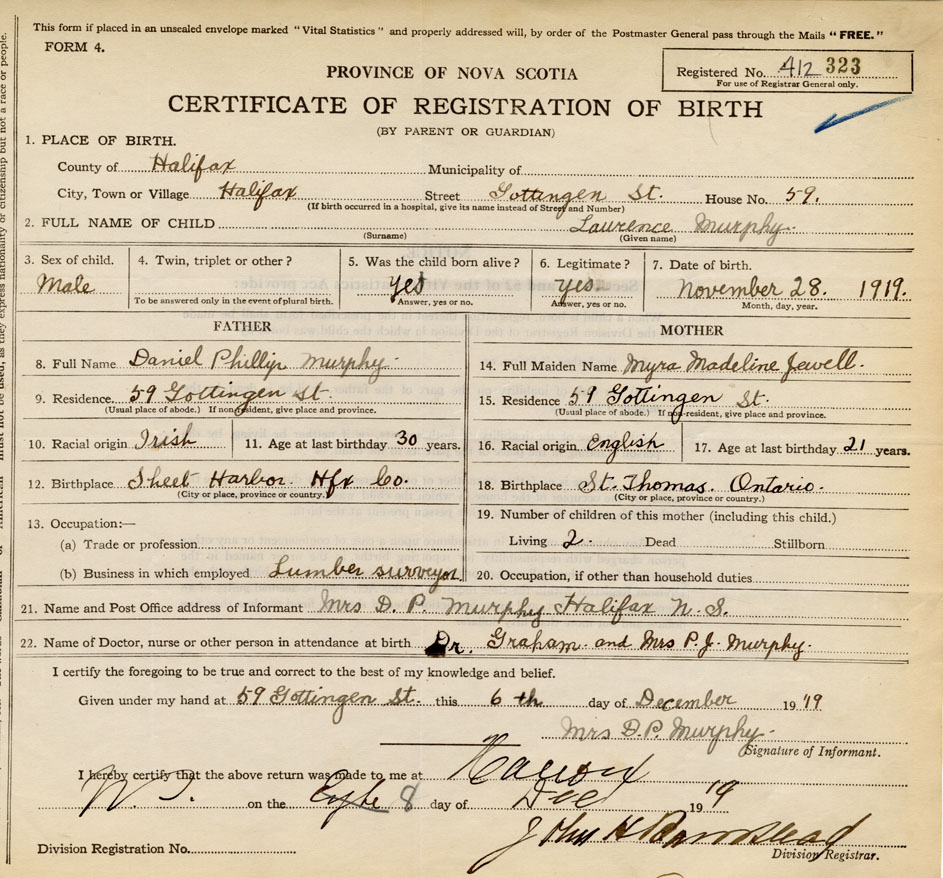 This form if placed in an unsealed envelope marked "Vital Statistics" and properly addressed will, by order of the Postmaster General pass through the Mails "FREE."
FORM 4.
Registered No. 412 323
For use of Registrar General only.
PROVINCE OF NOVA SCOTIA
CERTIFICATE OF REGISTRATION OF BIRTH
(BY PARENT OR GUARDIAN)
1. PLACE OF BIRTH.
County of Halifax Municipality of
City, Town or Village Halifax Street Gottingen St. House No. 59.
(If birth occurred in a hospital, give its name instead of Street and Number)
2. FULL NAME OF CHILD Laurence Murphy
(Surname) (Given name)
3. Sex of child. 4. Twin, triplet or other? 5. Was the child born alive? 6. Legitimate? 7. Date of birth.
Male yes yes. November 28. 1919.
To be answered only in the event of plural birth. Answer, yes or no. Answer, yes or no. Month, day, year.
FATHER MOTHER
8. Full Name Daniel Phillip Murphy 14. Full Maiden Name Myra Madeline Jewell.
9. Residence. 59 Gottingen St. 15. Residence 59 Gottingen St.
(Usual place of abode.) If non-resident, give place and province. (Usual place of abode.) If non-resident, give place and province.
10. Racial origin Irish 11. Age at last birthday 30 years. 16. Racial origin English 17. Age at last birthday 21 years.
12. Birthplace Sheet Harbor Hfx Co. 18. Birthplace St. Thomas. Ontario.
(City or place, province or country.) (City or place, province or country.)
13. Occupation:— 19. Number of children of this mother (including this child.)
(a) Trade or profession Living 2. Dead Stillborn
(b) Business in which employed Lumber surveyor 20. Occupation, if other than household duties
21. Name and Post Office address of Informant Mrs D. P. Murphy Halifax N. S.
22. Name of Doctor, nurse or other person in attendance at birth Dr. Graham and Mrs P. J. Murphy.
I certify the foregoing to be true and correct to the best of my knowledge and belief.
Given under my hand at 59 Gottingen St. this 6 th day of December 19 19
Mrs D. P. Murphy
Signature of Informant.
I hereby certify that the above return was made to me at
on the 8 day of Dec 19 19
John H
Division Registration No. Division Registrar.